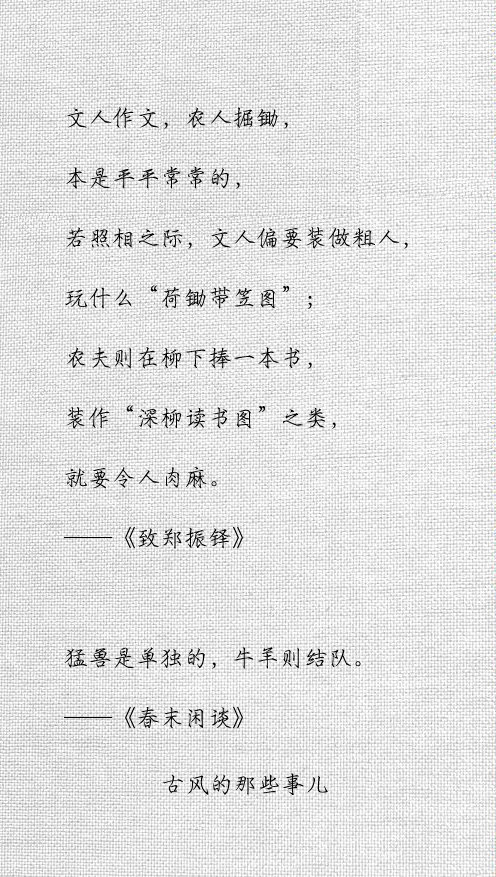 文人作文，农人掘锄，
本是平平常常的，
若照相之际，文人偏要装做粗人，
玩什么“荷锄带笠图”；
农夫则在柳下捧一本书，
装作“深柳读书图”之类，
就要令人肉麻。
——《致郑振铎》
猛兽是单独的，牛羊则结队。
——《春末闲谈》
古风的那些事儿